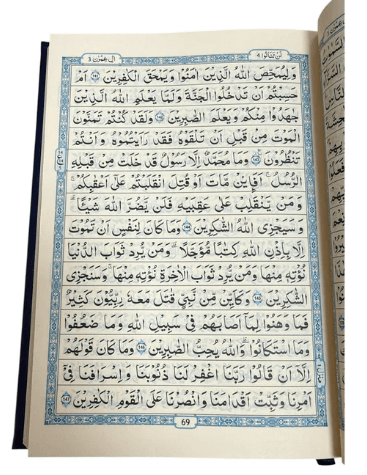 لن تنالوا ٤
اٰل عمرٰن ٣
وَلِيُمَحِّصَ اللّٰهُ الَّذِيْنَ اٰمَنُوْا وَيَمْحَقَ الْكٰفِرِيْنَ ﴿١٤١﴾ اَمْ
حَسِبْتُمْ اَنْ تَدْخُلُوا الْجَنَّةَ وَلَمَّا يَعْلَمِ اللّٰهُ الَّذِيْنَ
جٰهَدُوْا مِنْكُمْ وَيَعْلَمَ الصّٰبِرِيْنَ ﴿١٤٢﴾ وَلَقَدْ كُنْتُمْ تَمَنَّوْنَ
الْمَوْتَ مِنْ قَبْلِ اَنْ تَلْقَوْهُ فَقَدْ رَاَيْتُمُوْهُ وَاَنْتُمْ
تَنْظُرُوْنَ ﴿١٤٣﴾ وَمَا مُحَمَّدٌ اِلَّا رَسُوْلٌ قَدْ خَلَتْ مِنْ قَبْلِهِ
الرُّسُلُ اَفَاۡئِنْ مَّاتَ اَوْ قُتِلَ انْقَلَبْتُمْ عَلٰٓى اَعْقَابِكُمْ
وَمَنْ يَّنْقَلِبْ عَلٰى عَقِبَيْهِ فَلَنْ يَّضُرَّ اللّٰهَ شَيْـًٔا
وَسَيَجْزِى اللّٰهُ الشّٰكِرِيْنَ ﴿١٤٤﴾ وَمَا كَانَ لِنَفْسٍ اَنْ تَمُوْتَ
اِلَّا بِاِذْنِ اللّٰهِ كِتٰبًا مُّؤَجَّلًا وَمَنْ يُّرِدْ ثَوَابَ الدُّنْيَا
نُؤْتِهٖ مِنْهَا وَمَنْ يُّرِدْ ثَوَابَ الْاٰخِرَةِ نُؤْتِهٖ مِنْهَا وَسَنَجْزِى
الشّٰكِرِيْنَ ﴿١٤٥﴾ وَكَاَيِّنْ مِّنْ نَّبِيٍّ قٰتَلَ مَعَهٗ رِبِّيُّوْنَ كَثِيْرٌ
فَمَا وَهَنُوْا لِمَآ اَصَابَهُمْ فِيْ سَبِيْلِ اللّٰهِ وَمَا ضَعُفُوْا
وَمَا اسْتَكَانُوْا وَاللّٰهُ يُحِبُّ الصّٰبِرِيْنَ ﴿١٤٦﴾ وَمَا كَانَ قَوْلَهُمْ
اِلَّآ اَنْ قَالُوْا رَبَّنَا اغْفِرْ لَنَا ذُنُوْبَنَا وَاِسْرَافَنَا فِيْٓ
اَمْرِنَا وَثَبِّتْ اَقْدَامَنَا وَانْصُرْنَا عَلَى الْقَوْمِ الْكٰفِرِيْنَ ﴿١٤٧﴾
69